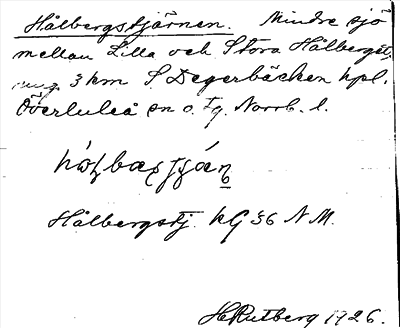 Hålbergstjärnen. Mindre sjö
mellan Lilla och Stora Hålberget,
3 km S Degerbäcken hpl.
Överluleå sn o. tg. Norrb. l.
Hålbergstj. kG 36 N M.
H Rutberg 1926.